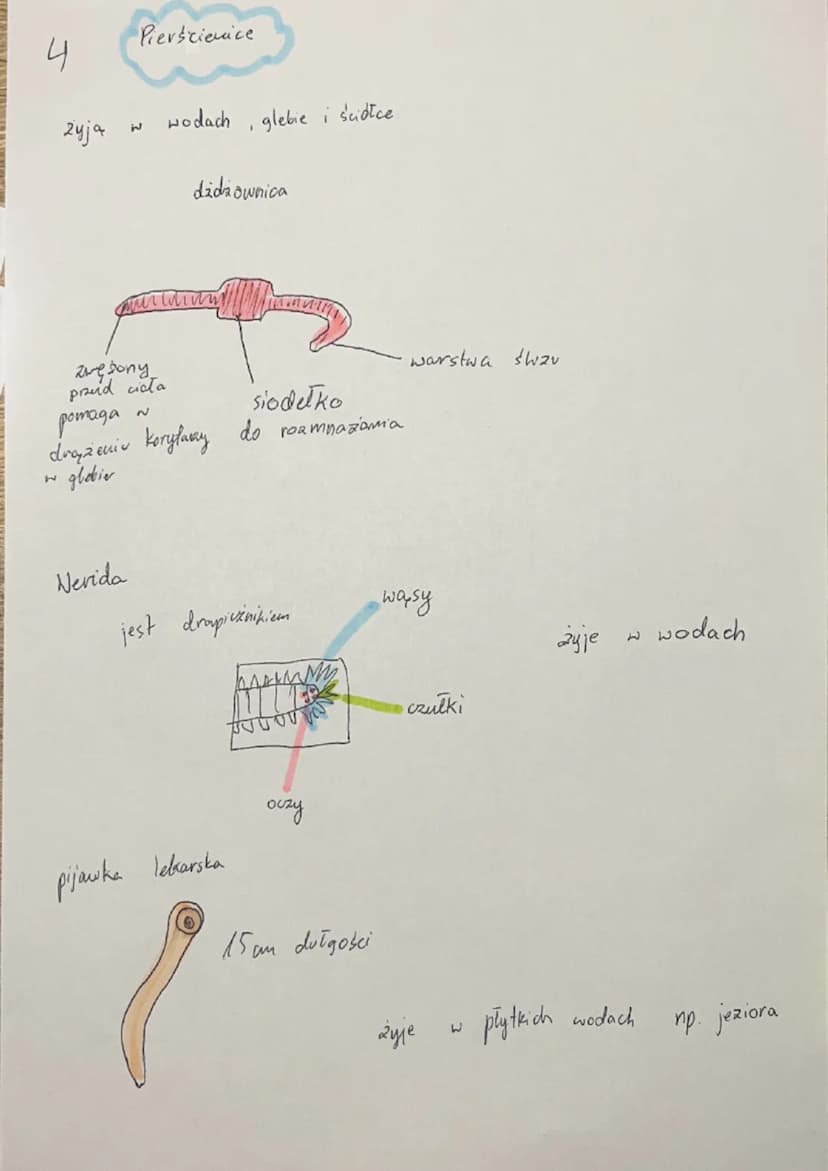 4
Pierścienice
żyją w wodach, glebie i ściółce
dżdżownica
zwężony
przód ciała
pomaga w
drążeniu korytarzy
w glebie
siodełko
do rozmnażania
warstwa śluzu
Nerida
jest drapieżnikiem
wąsy
żyje w wodach
czułki
oczy
pijawka lekarska
15 cm dułgości
żyje w płytkich wodach np. jeziora